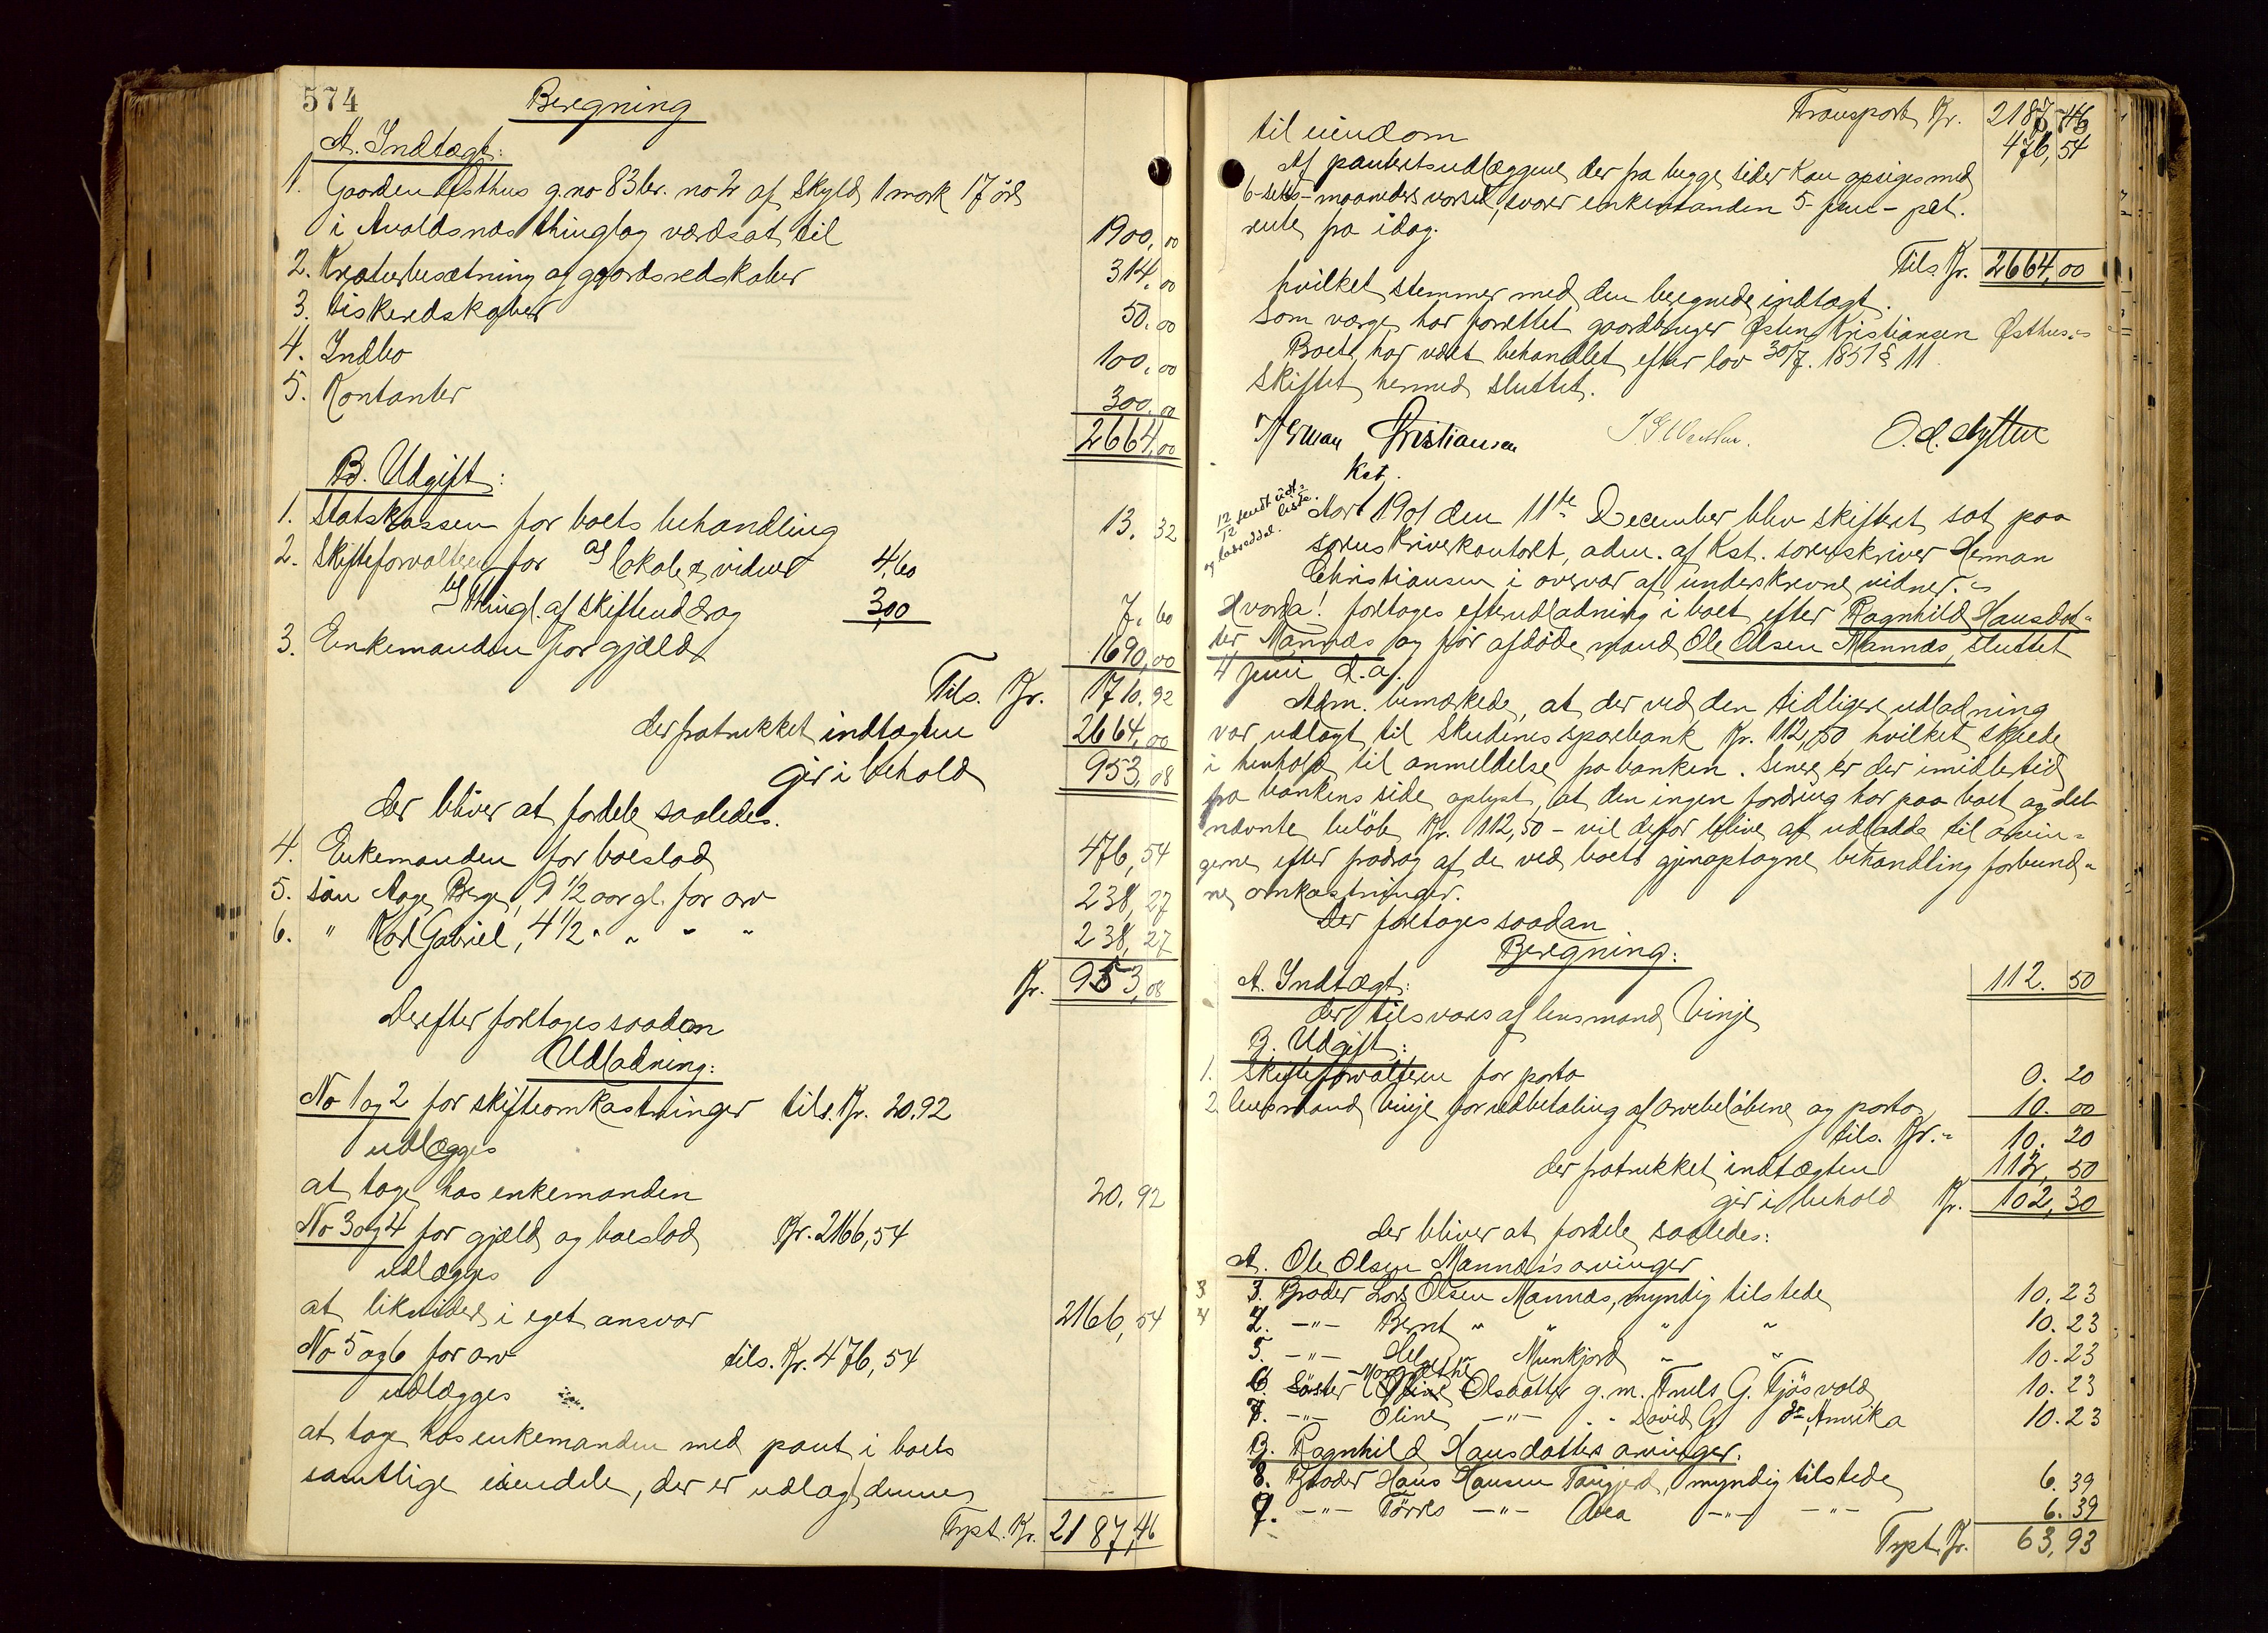 574
Beregning
A. Indtægt:
1. Gaarden Østhus g.no 83 br. no 2 af skyld 1 mark 17 øre
i Avaldsnæs thinglag værdsat til 1900,00
2. Kreaturbesætning og gaardsredskaber 314,00
3. Fiskeredskaber 50,00
4. Indbo 100,00
5. Kontanter 300,00
2664,00
B. Udgift:
1. Statskassen for boets behandling 13.32
2. Skifteforvalteren for a) lokale & vidner 4,60
b) thingl. af skifteuddrag 3,00 7.60
3. Enkemanden for gjæld 1690,00
Tils. Kr. 1710.92
der fratrukket indtægten 2664,00
gir i behold 953,08
der bliver at fordele saaledes.
4. Enkemanden for boeslod 476,54
5. Søn Aage Berge, 9 1/2 aar gl. for arv 238,27
6. " Karl Gabriel, 4 1/2 " " " " 238,27
Kr. 953,08
Derefter foretages saadan
Udlodning:
No 1 og 2 for skifteomkastninger tils. Kr. 20.92
udlægges
at tage hos enkemanden 20.92
No 3 og 4 for gjæld og boeslod Kr. 2166,54
udlægges
at likvidere i eget ansvar 2166,54
No 5 og 6 for arv tils. Kr. 476,54
udlægges
at tage hos enkemanden med pant i boets
samtlige eiendele, der er udlagt denne
Trpt. Kr. 2187,46
Transport Kr. 2187,46
til eiendom 476,54
Af panteretsudlæggene, der fra begge sider kan opsiges med
6-seks-maaneders varsel, svarer enkemanden 5-fem-pct.
rente fra idag.
Tils. Kr. 2664,00
hvilket stemmer med den beregnede indtægt.
Som værge har forrettet gaardbruger Østen Kristiansen Østhus.-
Boet har været behandlet efter lov 30/7. 1851 § 11
Skiftet hermed sluttet.
Herman Christiansen O. A. Lytter
Kst.
12/12 sendt udl-
liste
og laaseddel.
Aar 1901 den 11te December blev skifteret sat paa
sorenskriverkontoret, adm. af Kst. sorenskriver Herman
Christiansen i overvær af underskrevne vidner.-
Hvorda! foretages efterudlodning i boet efter Ragnhild Hansdat-
ter Mannæs og før afdøde mand Ole Olsen Mannæs, sluttet
4 juni d.a.
Adm. bemærkede, at der ved den tidligere udlodning
var udlagt til Skudenes sparebank Kr. 112,50 hvilket skjede
i henhold til anmeldelse fra banken. Senere er der imidlertid
fra bankens side oplyst, at den ingen fordring har paa boet og det
nævnte beløb Kr. 112,50 - vil derfor blive at udlodde til arvin-
gerne efter fradrag af de ved boets gjenoptagne behandling forbund-
ne omkostninger.
Der foretages saadan
Beregning:
A. Indtægt: 112.50
der tilsvares af lensmand Vinje
B. Udgift:
1. Skifteforvalteren for porto 0.20
2. lensmand Vinje for udbetaling af arvebeløbene og porto 10.00
tils. Kr.- 10.20
der fratrukket indtægten 112,50
gir i behold Kr. 102,30
der bliver at fordele saaledes:
A. Ole Olsen Mannæs's arvinger
3 3. Broder Lars Olsen Mannæs, myndig tilstede 10.23
4 4. -"- Bernt " " " " 10.23
5. -"- Helge " Munkjord " " 10.23
Margrethe
6. Søster Olsdatter g. m. Truls G. Tjøsvold 10.23
7. -"- Oline -"- " " David G. ds, Amerika 10.23
B. Ragnhild Hansdatters arvinger.
8. Broder Hans Hansen, myndig tilstede 6.39
9. -"- Tørres -"- -"- -"- 6.39
Trpt. Kr. 63,93